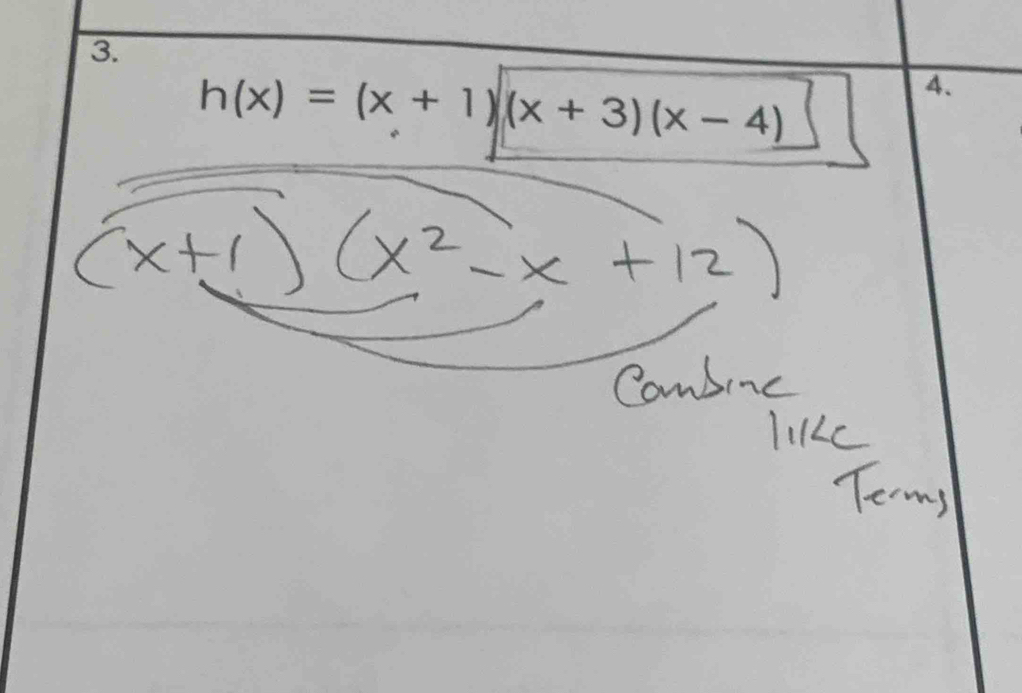 3.
h(x) = (x + 1)(x + 3)(x − 4)
4.
(x+1) (x² - x + 12)
Combine
like
Terms